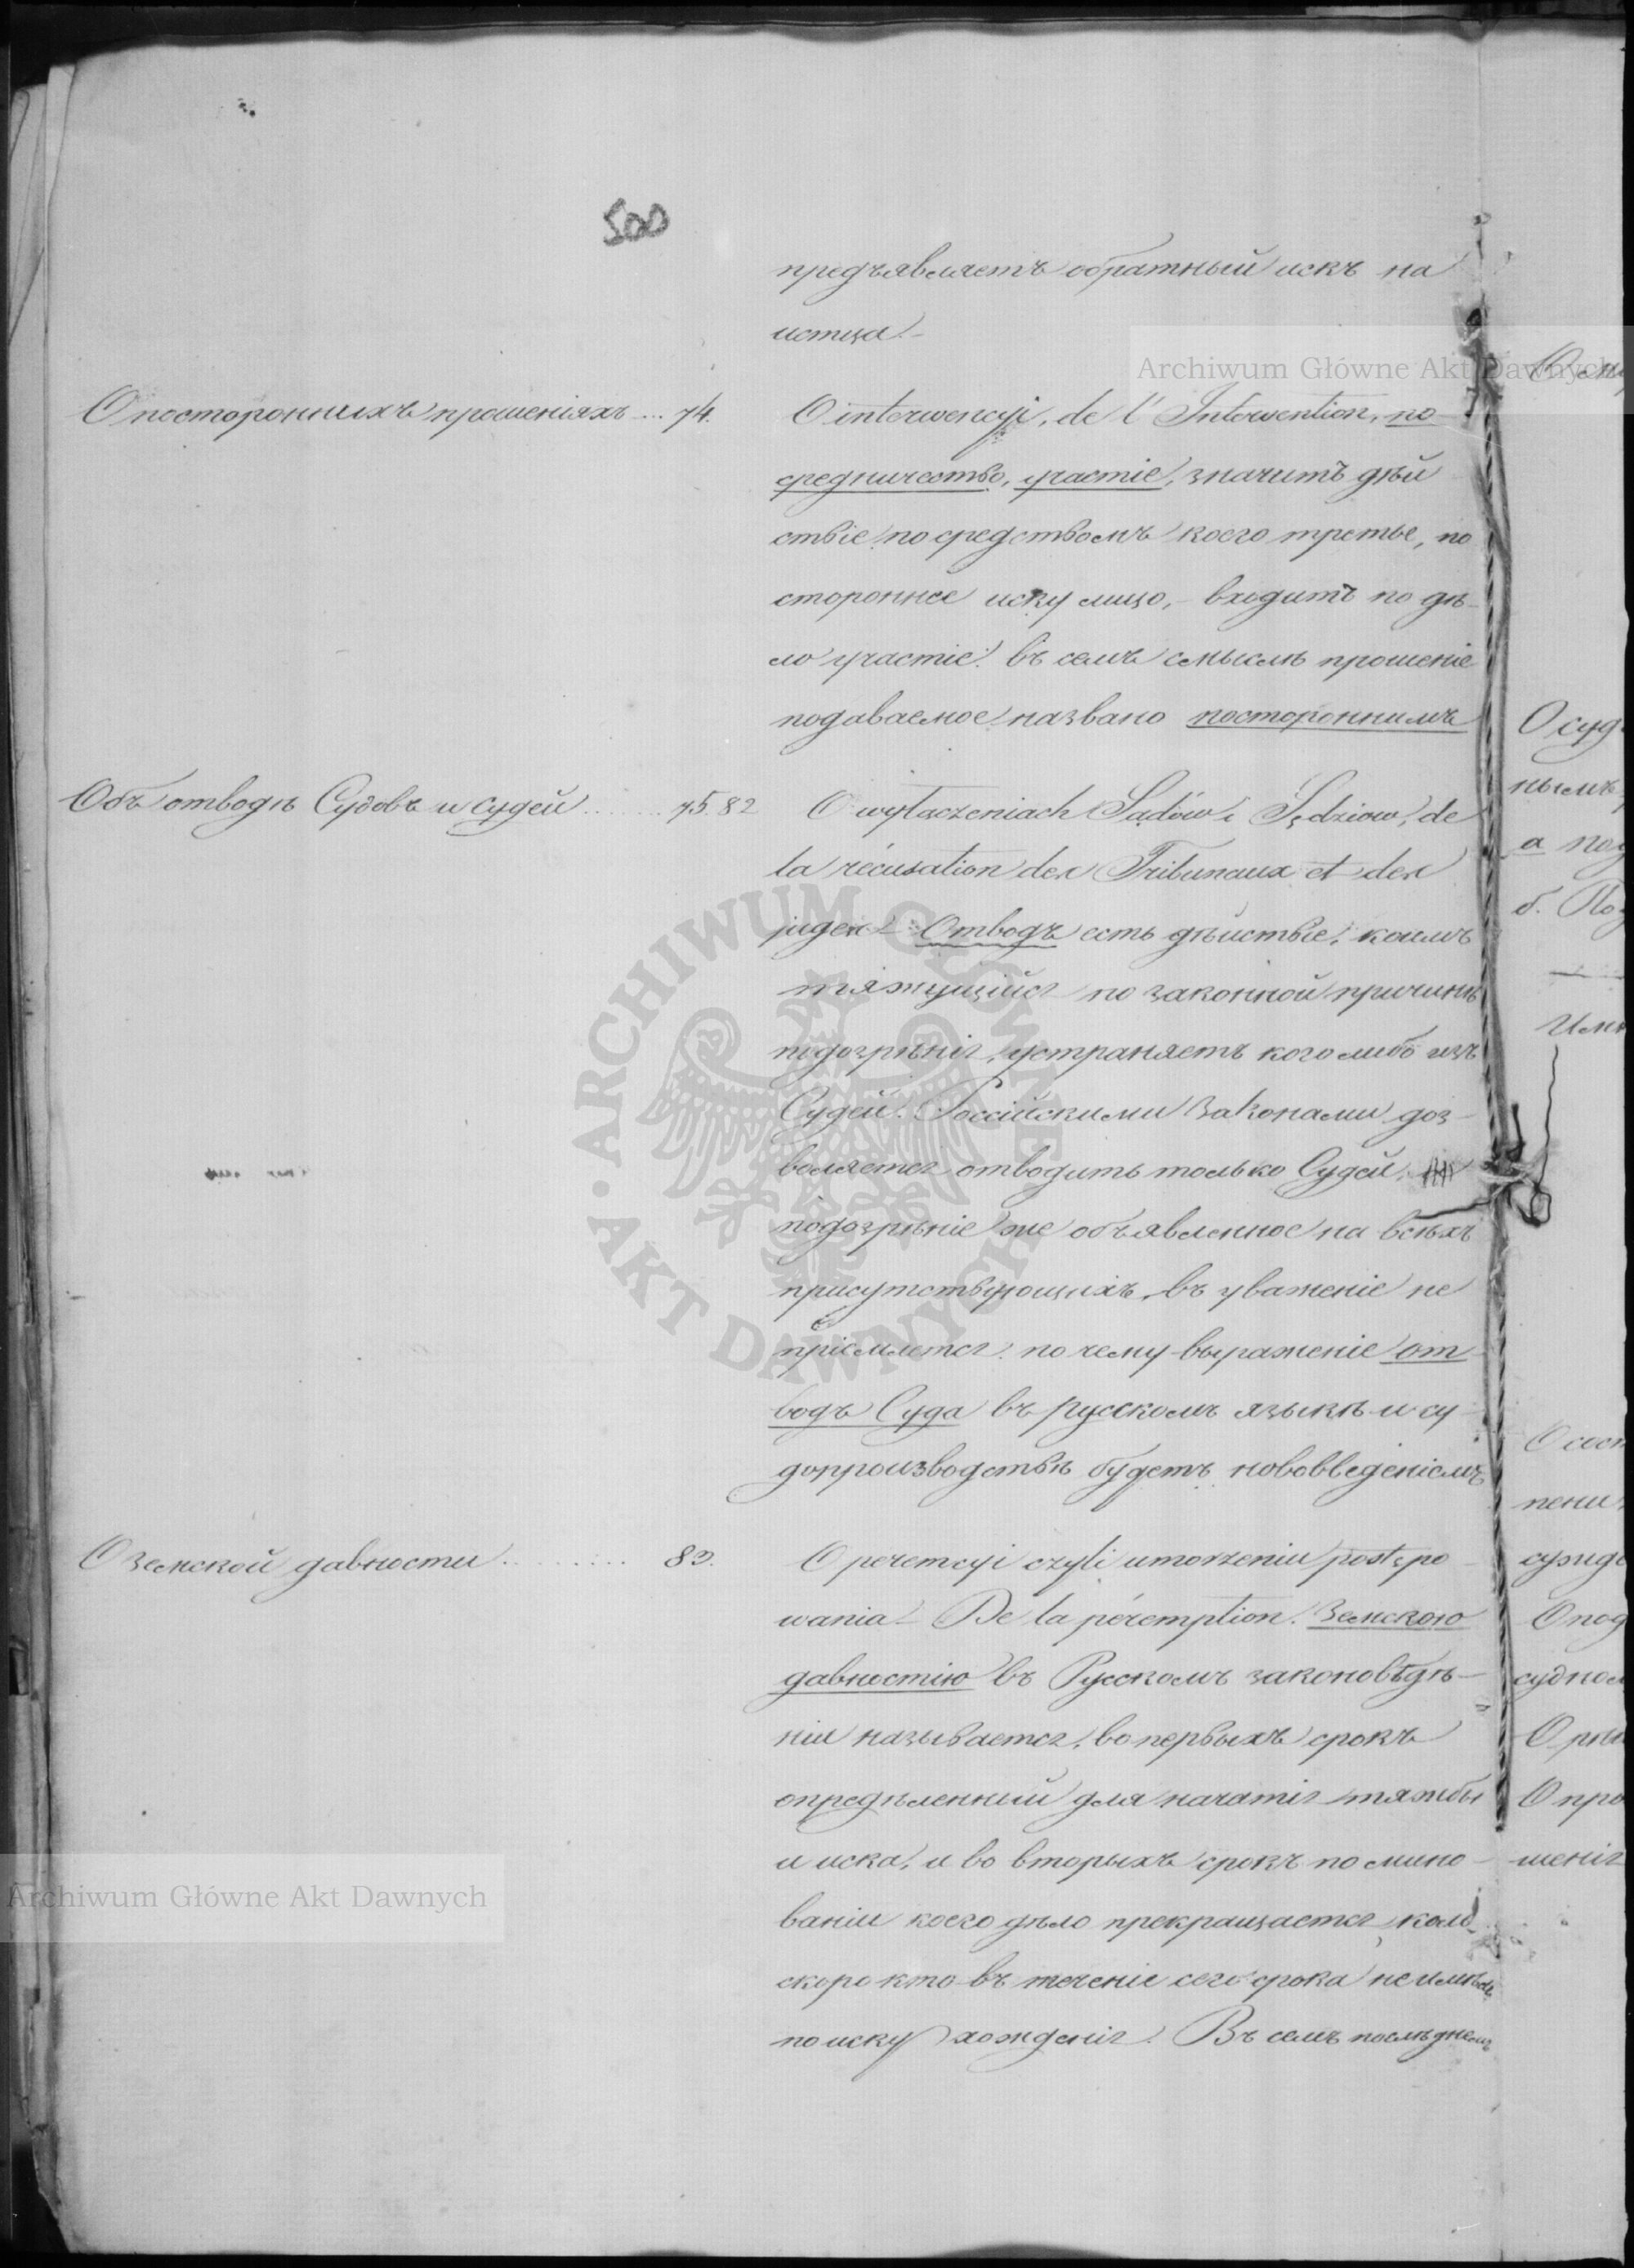 500
предъявляетъ обратный искъ на
истца. -
О постороннихъ прошеніяхъ ... 74.
O interwencyi, de l'Intervention, по
средничество, участіе, значитъ дѣй
ствіе посредствомъ коего третье, по
стороннее иску лицо, - входитъ по дѣ-
ло участіе. въ семъ смыслѣ прошеніе
подаваемое названо постороннимъ
Объ отводѣ Судовъ и Судей ........ 75. 82
O wyłączeniach Sądów i Sędziow, de
la récusation des Tribunaux et des
juges - Отводъ есть дѣйствіе, коимъ
тяжущійся по законной причинѣ
подозрѣнія, устраняетъ кого либо изъ
Судей. Россійскими Законами доз-
воляется отводить только Судей,
подозрѣніе же объявленное на всѣхъ
присутствующихъ, въ уваженіе не
пріемлется. по чему выраженіе от
водъ Суда въ русскомъ языкѣ и су-
допроизводствѣ будетъ нововведеніемъ
О Земской давности .......... 83.
O perempcyi czyli umorzeniu postępo-
wania - De la péremption. Земскою
давностію въ Русскомъ законовѣдѣ-
ніи называется, вопервыхъ срокъ
опредѣленный для начатія тяжбы
и иска, и во вторыхъ срокъ по мино-
ваніи коего дѣло прекращается коль
скоро кто въ теченіе сего срока не имѣлъ
по иску хожденія. Въ семъ послѣднемъ
О суд
нымъ
а под
б. Поз
О сост
пени
сужде
О под
судном
О рѣш
О про
шенія
Archiwum Główne Akt Dawnych
ARCHIWUM GŁÓWNE AKT DAWNYCH
Archiwum Główne Akt Dawnych